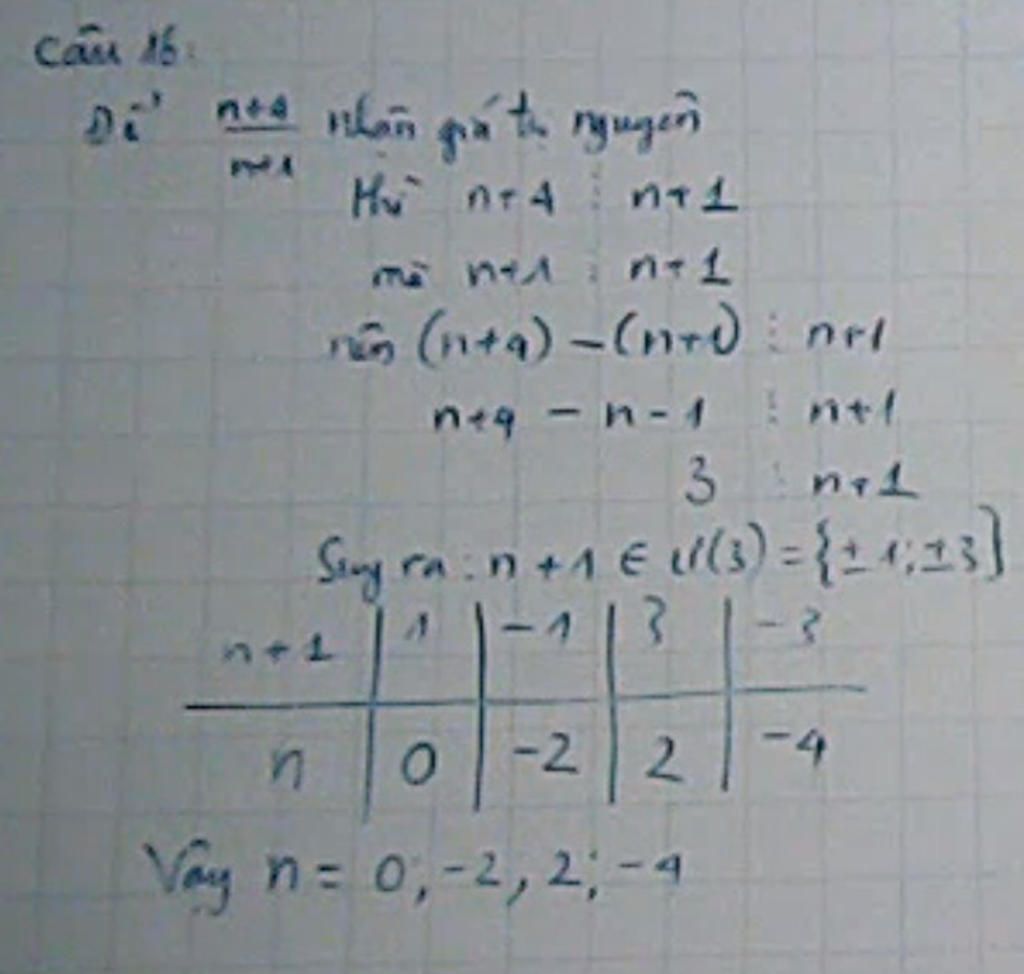 Câu 16:
Để n+4/n+1 nhận giá trị nguyên
thì n+4 ⋮ n+1
mà n+1 ⋮ n+1
nên (n+4) - (n+1) ⋮ n+1
n+4 - n - 1 ⋮ n+1
3 ⋮ n+1
Suy ra: n+1 ∈ Ư(3) = {±1; ±3}
n+1 | 1 | -1 | 3 | -3
n | 0 | -2 | 2 | -4
Vậy n = 0; -2, 2; -4